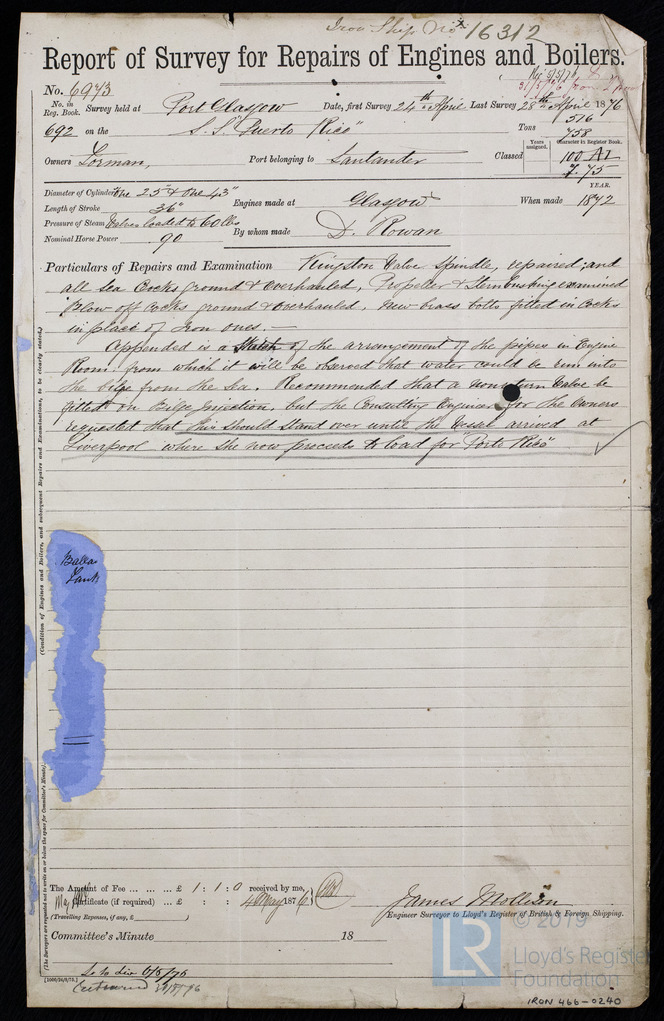 Iron Ship No 16312
Report of Survey for Repairs of Engines and Boilers.
No. 6973
No. in Reg. Book. Survey held at Port Glasgow Date, first Survey 24th April Last Survey 28th April 1876
692 on the S.S. "Puerto Rico" Tons 516
758
Owners Port belonging to Santander Classed
Years assigned. Character in Register Book.
100 A1
7.75
YEAR.
Diameter of Cylinder One 25" & One 43"
Length of Stroke 36" Engines made at Glasgow When made 1872
Pressure of Steam Valves loaded to 60 lbs
Nominal Horse Power 90 By whom made D. Rowan
Particulars of Repairs and Examination Kingston Valve Spindle, repaired; and
all Sea Cocks ground & overhauled, Propeller & Sternbushing examined
Blow off Cocks ground & overhauled. New brass bolts fitted in Cocks
in place of Iron ones.—
Appended is a Sketch of the arrangement of the pipes in Engine
Room from which it will be observed that water could be run into
the bilge from the Sea. Recommended that a non return Valve be
fitted on Bilge injection, but the Consulting Engineer for the Owners
requested that this should Stand over until the Vessel arrived at
Liverpool where She now proceeds to load for "Porto Rico"
(Condition of Engines and Boilers, and subsequent Repairs and Examinations, to be clearly stated.)
Tank
(The Surveyors are requested not to write on or below the space for Committee's Minute)
The Amount of Fee ... ... ... £ 1 : 1 : 0 received by me,
Certificate (if required) ... £ : : 4 May 1876
(Travelling Expenses, if any, £ )
James Mollison
Engineer Surveyor to Lloyd's Register of British & Foreign Shipping.
Committee's Minute 18
6/5/76
LR
© 2019
Lloyd's Register
Foundation
IRON 466-0240